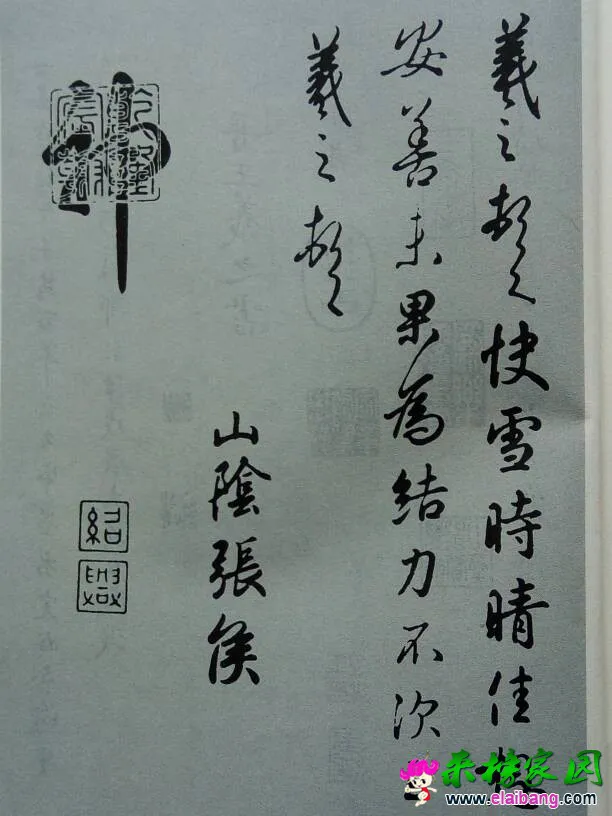 羲之頓首快雪時晴佳想
安善未果為結力不次
羲之頓首
山陰張侯
紹興
来榜家园
www.elaibang.com